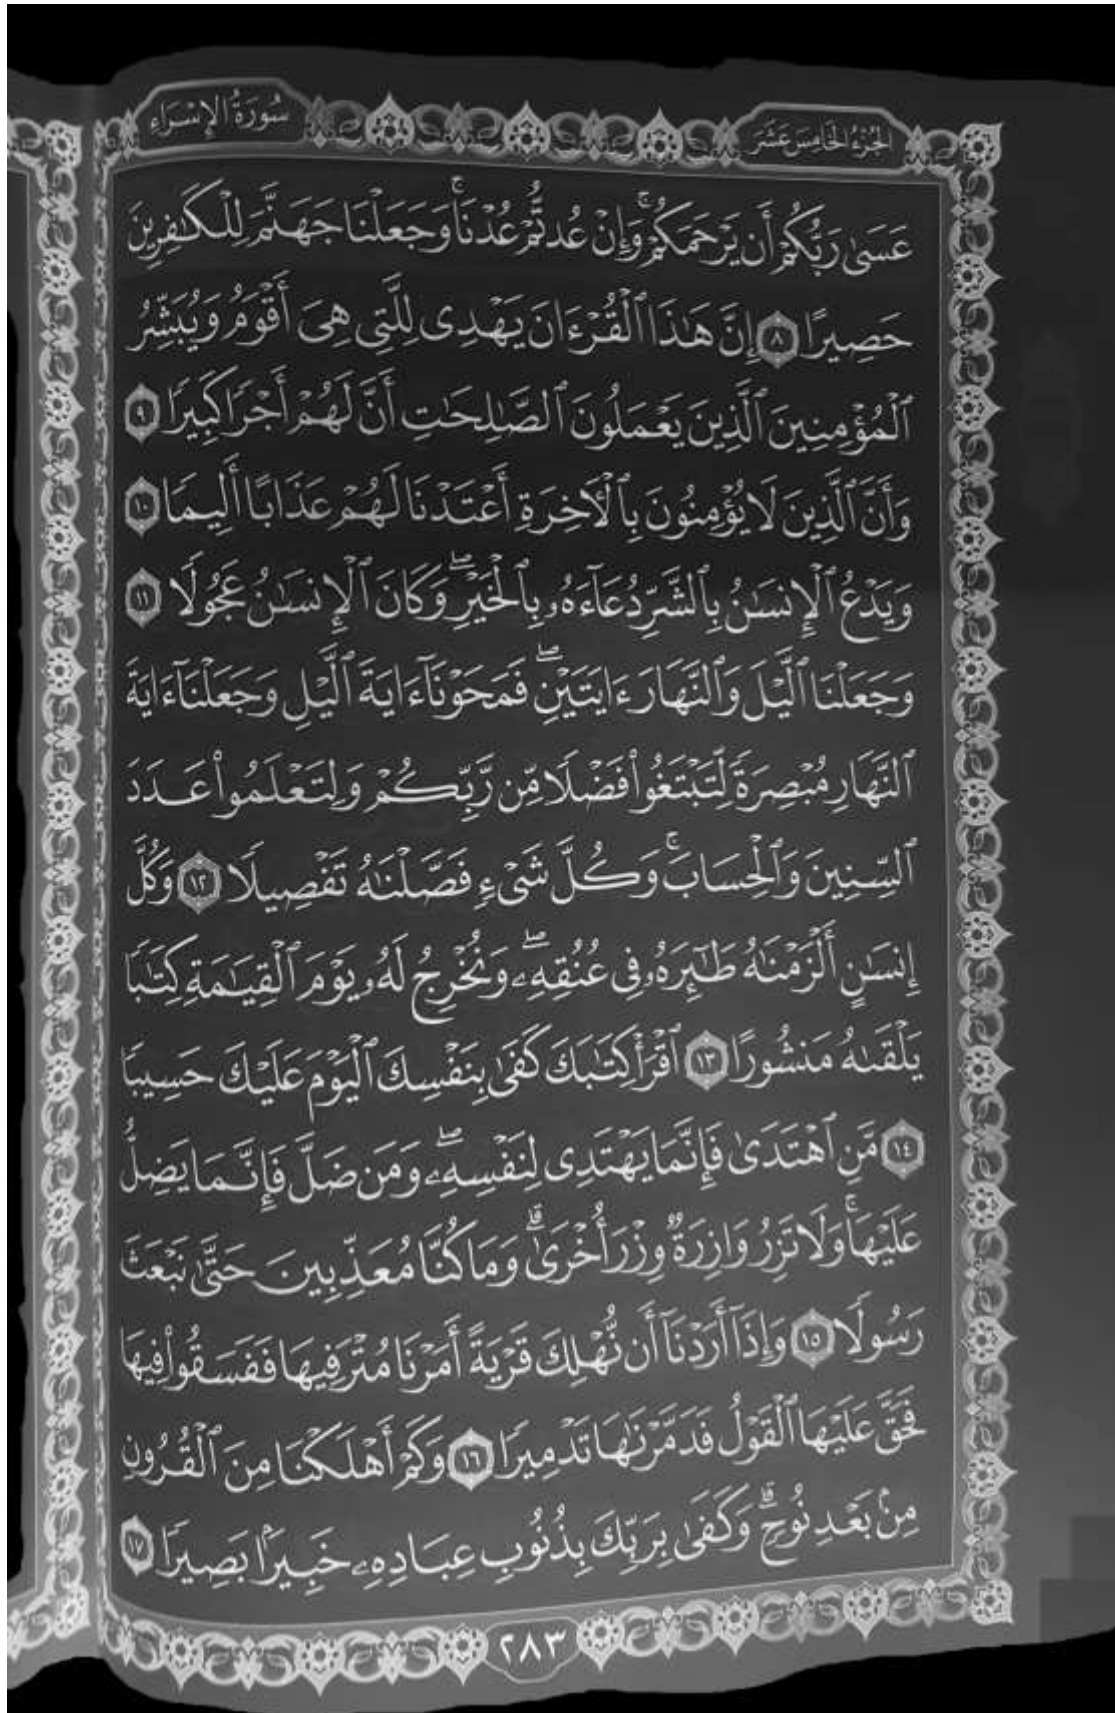 الجُزْءُ الخَامِسَ عَشَرَ
سُورَةُ الإِسْرَاءِ
عَسَىٰ رَبُّكُمْ أَن يَرْحَمَكُمْ ۚ وَإِنْ عُدتُّمْ عُدْنَا ۚ وَجَعَلْنَا جَهَنَّمَ لِلْكَٰفِرِينَ
حَصِيرًا ٨ إِنَّ هَٰذَا ٱلْقُرْءَانَ يَهْدِى لِلَّتِى هِىَ أَقْوَمُ وَيُبَشِّرُ
ٱلْمُؤْمِنِينَ ٱلَّذِينَ يَعْمَلُونَ ٱلصَّٰلِحَٰتِ أَنَّ لَهُمْ أَجْرًا كَبِيرًا ٩
وَأَنَّ ٱلَّذِينَ لَا يُؤْمِنُونَ بِٱلْءَاخِرَةِ أَعْتَدْنَا لَهُمْ عَذَابًا أَلِيمًا ١٠
وَيَدْعُ ٱلْإِنسَٰنُ بِٱلشَّرِّ دُعَآءَهُۥ بِٱلْخَيْرِ ۖ وَكَانَ ٱلْإِنسَٰنُ عَجُولًا ١١
وَجَعَلْنَا ٱلَّيْلَ وَٱلنَّهَارَ ءَايَتَيْنِ ۖ فَمَحَوْنَآ ءَايَةَ ٱلَّيْلِ وَجَعَلْنَآ ءَايَةَ
ٱلنَّهَارِ مُبْصِرَةً لِّتَبْتَغُوا۟ فَضْلًا مِّن رَّبِّكُمْ وَلِتَعْلَمُوا۟ عَدَدَ
ٱلسِّنِينَ وَٱلْحِسَابَ ۚ وَكُلَّ شَىْءٍ فَصَّلْنَٰهُ تَفْصِيلًا ١٢ وَكُلَّ
إِنسَٰنٍ أَلْزَمْنَٰهُ طَٰٓئِرَهُۥ فِى عُنُقِهِۦ ۖ وَنُخْرِجُ لَهُۥ يَوْمَ ٱلْقِيَٰمَةِ كِتَٰبًا
يَلْقَىٰهُ مَنشُورًا ١٣ ٱقْرَأْ كِتَٰبَكَ كَفَىٰ بِنَفْسِكَ ٱلْيَوْمَ عَلَيْكَ حَسِيبًا
١٤ مَّنِ ٱهْتَدَىٰ فَإِنَّمَا يَهْتَدِى لِنَفْسِهِۦ ۖ وَمَن ضَلَّ فَإِنَّمَا يَضِلُّ
عَلَيْهَا ۚ وَلَا تَزِرُ وَازِرَةٌ وِزْرَ أُخْرَىٰ ۗ وَمَا كُنَّا مُعَذِّبِينَ حَتَّىٰ نَبْعَثَ
رَسُولًا ١٥ وَإِذَآ أَرَدْنَآ أَن نُّهْلِكَ قَرْيَةً أَمَرْنَا مُتْرَفِيهَا فَفَسَقُوا۟ فِيهَا
فَحَقَّ عَلَيْهَا ٱلْقَوْلُ فَدَمَّرْنَٰهَا تَدْمِيرًا ١٦ وَكَمْ أَهْلَكْنَا مِنَ ٱلْقُرُونِ
مِنۢ بَعْدِ نُوحٍ ۗ وَكَفَىٰ بِرَبِّكَ بِذُنُوبِ عِبَادِهِۦ خَبِيرًۢا بَصِيرًا ١٧
٢٨٣